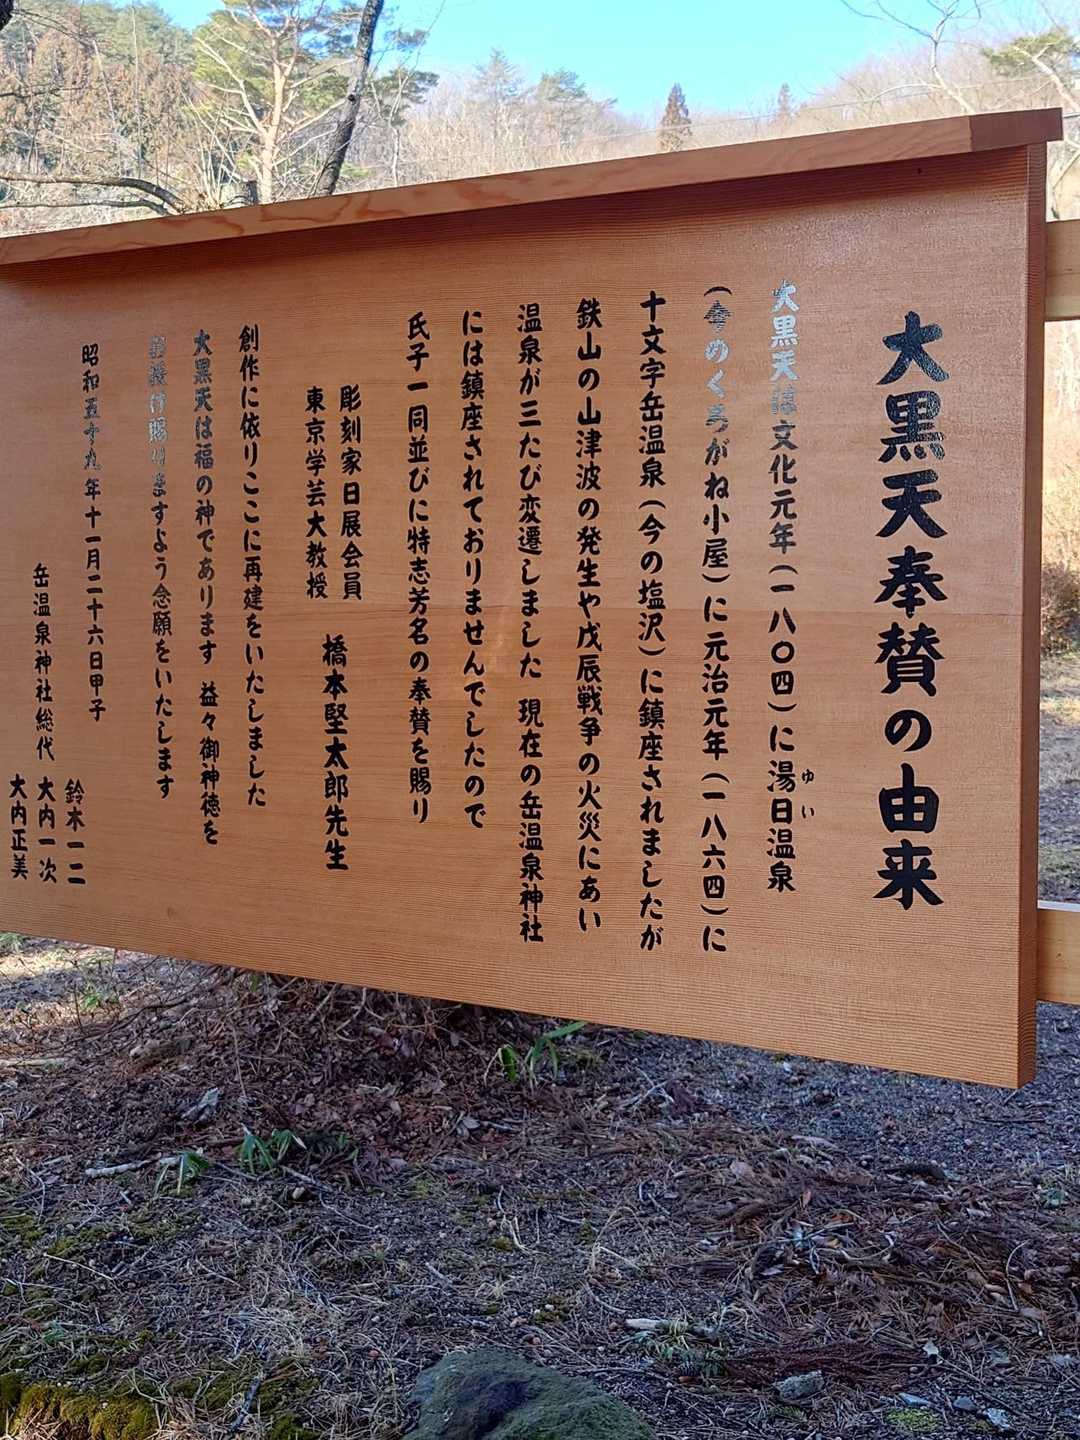 大黒天奉賛の由来
大黒天は文化元年(一八〇四)に湯日温泉
ゆい
(今のくろがね小屋)に元治元年(一八六四)に
十文字岳温泉(今の塩沢)に鎮座されましたが
鉄山の山津波の発生や戊辰戦争の火災にあい
温泉が三たび変遷しました 現在の岳温泉神社
には鎮座されておりませんでしたので
氏子一同並びに特志芳名の奉賛を賜り
彫刻家日展会員
東京学芸大教授
橋本堅太郎先生
創作に依りここに再建をいたしました
大黒天は福の神であります 益々御神徳を
お授け賜りますよう念願をいたします
昭和五十九年十一月二十六日甲子
岳温泉神社総代
鈴木一二
大内一次
大内正美